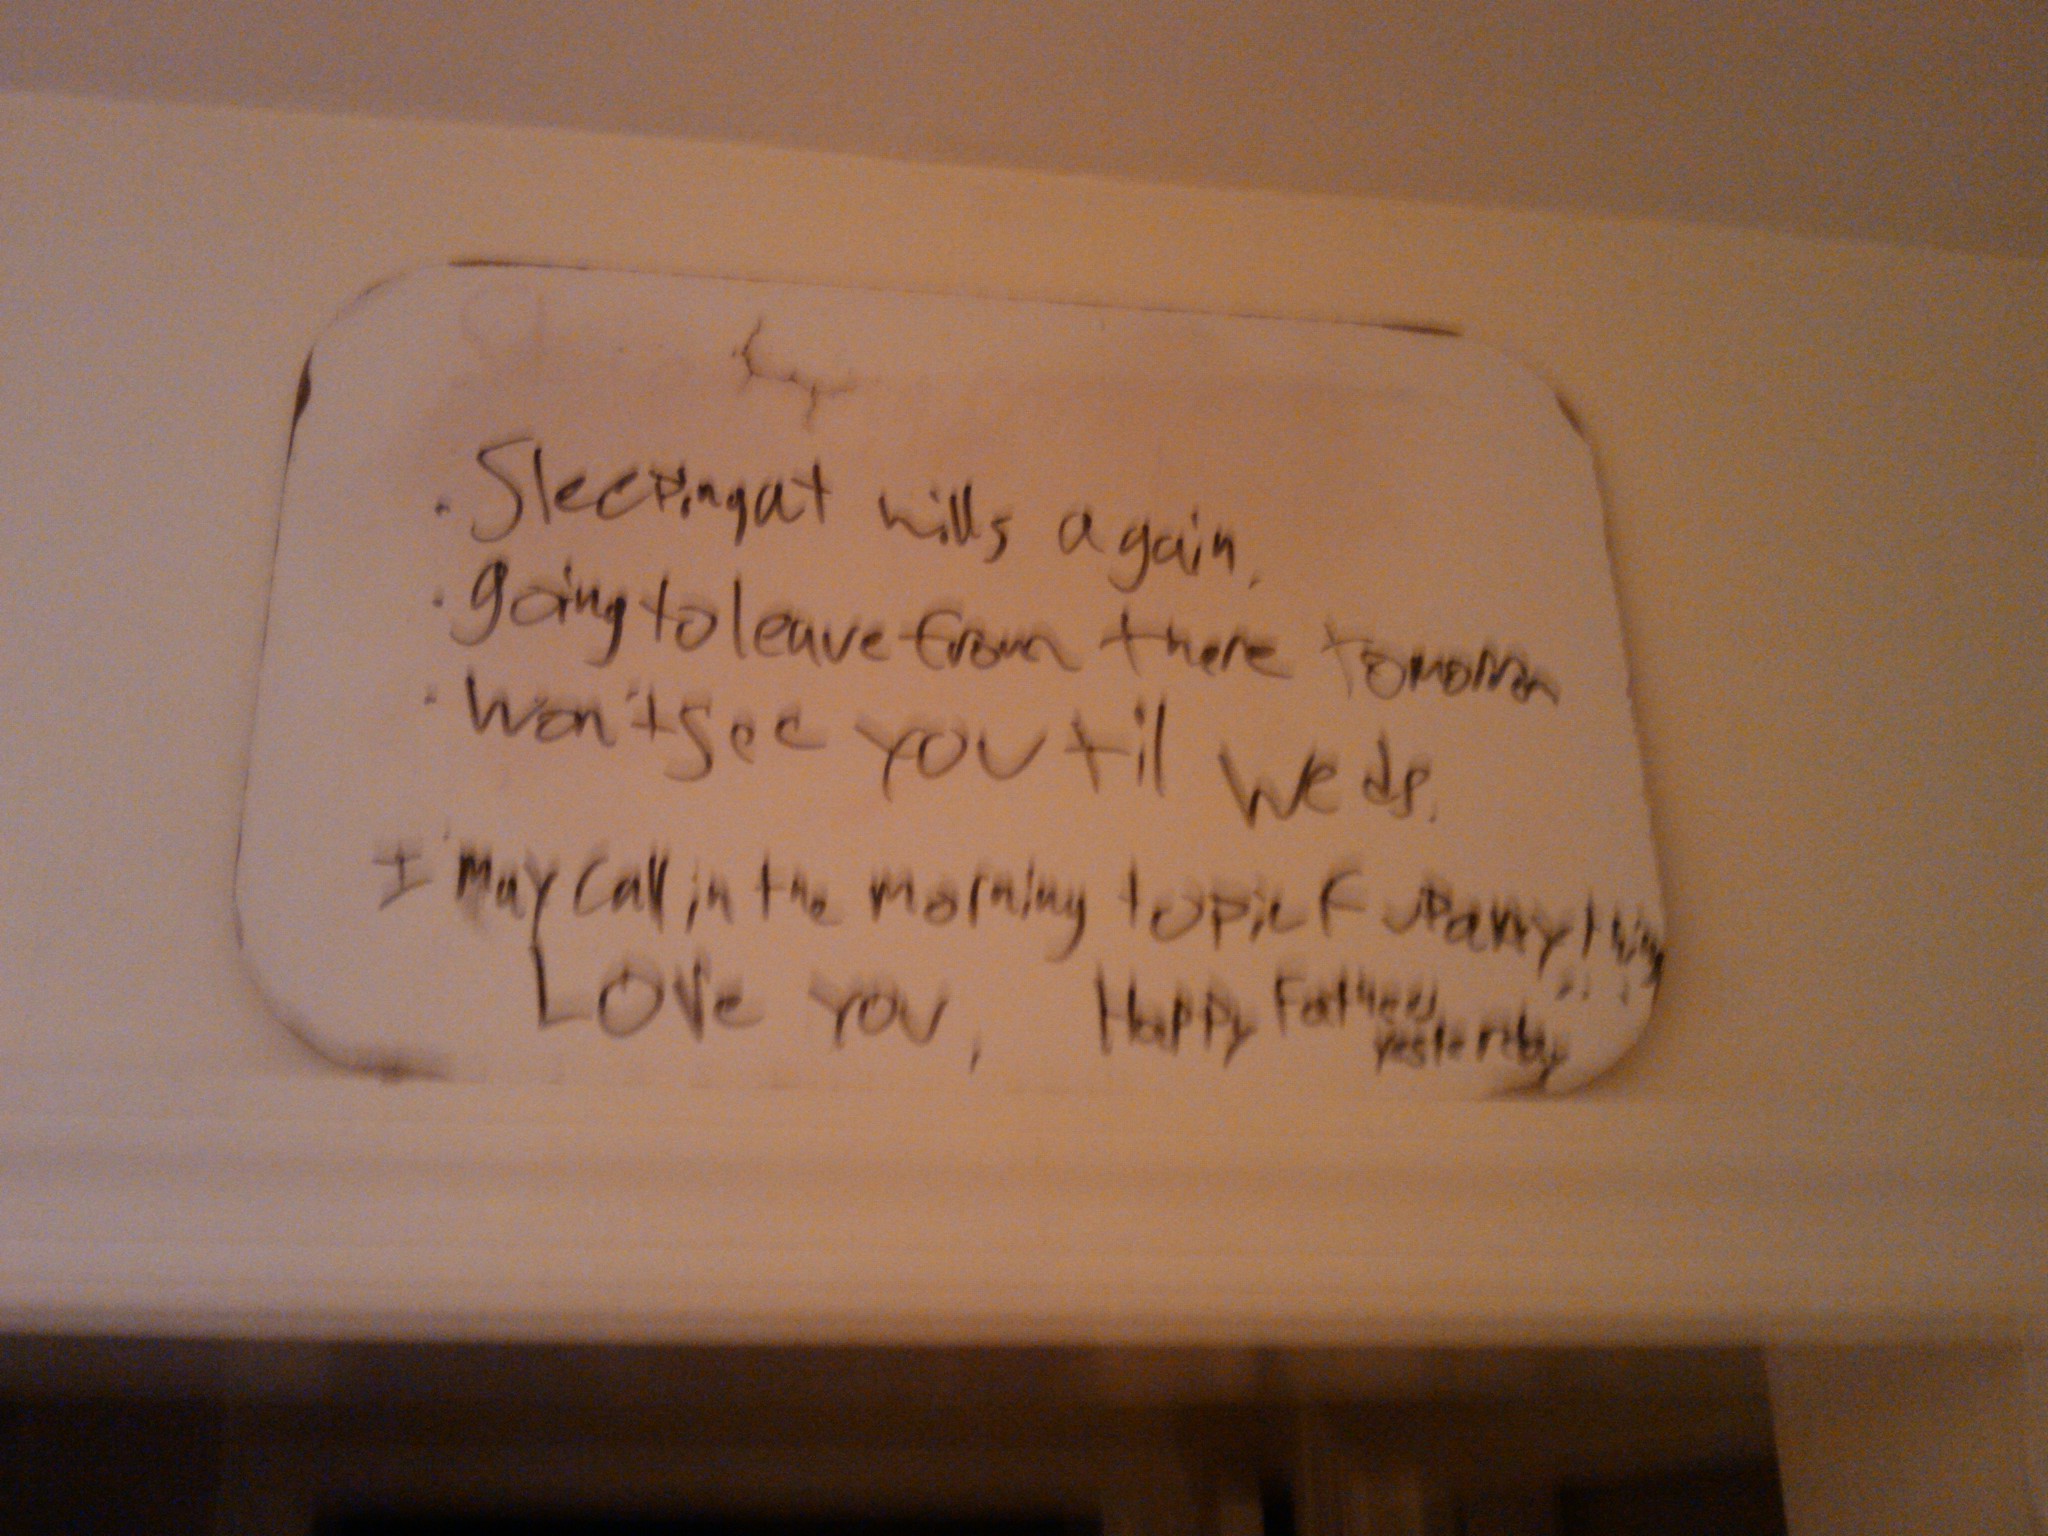 · Sleeping at wills again.
· going to leave from there tomorrow
· Won't see you til Weds.
I may call in the morning to pick up anything
Love you, Happy Fathers
yesterday